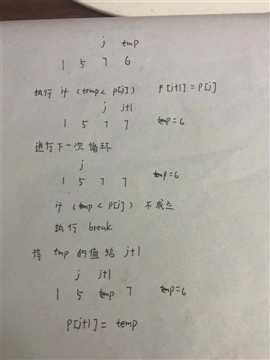 j tmp
1 5 7 6
执行 if (temp < p[j]) p[j+1] = p[j]
j j+1
1 5 7 7 tmp=6
进行下一次循环
j
1 5 7 7 tmp=6
if (tmp < p[j]) 不成立
执行 break
将 tmp 的值给 j+1
j j+1
1 5 tmp 7 tmp=6
p[j+1] = temp